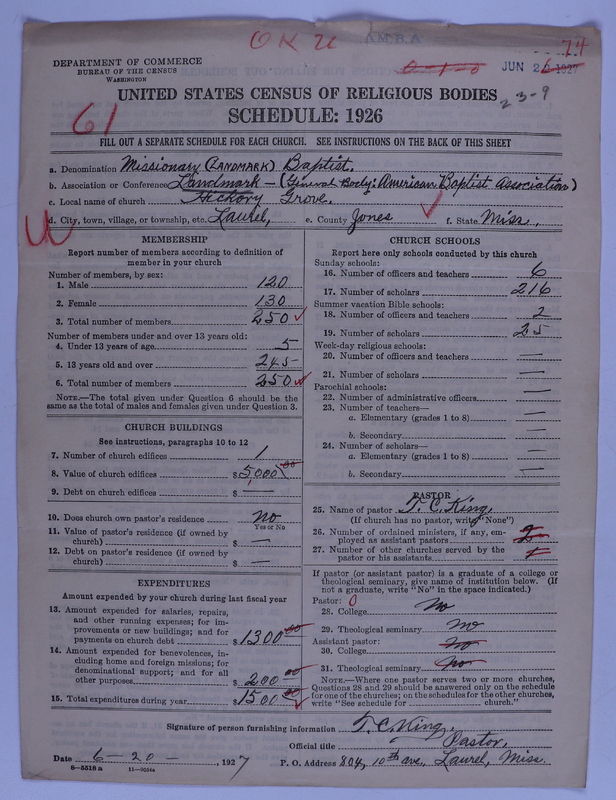 O K U A.M.B.A 74
DEPARTMENT OF COMMERCE
BUREAU OF THE CENSUS
WASHINGTON
JUN 2 1927
UNITED STATES CENSUS OF RELIGIOUS BODIES
23-9
SCHEDULE: 1926
61
FILL OUT A SEPARATE SCHEDULE FOR EACH CHURCH. SEE INSTRUCTIONS ON THE BACK OF THIS SHEET
a. Denomination Missionary (LANDMARK) Baptist.
b. Association or Conference Landmark - (General Body: American Baptist Association)
c. Local name of church Hickory Grove.
d. City, town, village, or township, etc. Laurel, e. County Jones f. State Miss.,
MEMBERSHIP
Report number of members according to definition of
member in your church
Number of members, by sex:
1. Male 120
2. Female 130
3. Total number of members 250
Number of members under and over 13 years old:
4. Under 13 years of age 5
5. 13 years old and over 245
6. Total number of members 250
NOTE.—The total given under Question 6 should be the
same as the total of males and females given under Question 3.
CHURCH BUILDINGS
See instructions, paragraphs 10 to 12
7. Number of church edifices 1
8. Value of church edifices $5,000 00
9. Debt on church edifices $ —
10. Does church own pastor's residence No
Yes or No
11. Value of pastor's residence (if owned by
church) $ —
12. Debt on pastor's residence (if owned by
church) $ —
EXPENDITURES
Amount expended by your church during last fiscal year
13. Amount expended for salaries, repairs,
and other running expenses; for im-
provements or new buildings; and for
payments on church debt $1300 00
14. Amount expended for benevolences, in-
cluding home and foreign missions; for
denominational support; and for all
other purposes $ 200 00
15. Total expenditures during year $1500 00
CHURCH SCHOOLS
Report here only schools conducted by this church
Sunday schools:
16. Number of officers and teachers 6
17. Number of scholars 216
Summer vacation Bible schools:
18. Number of officers and teachers 2
19. Number of scholars 25
Week-day religious schools:
20. Number of officers and teachers —
21. Number of scholars —
Parochial schools:
22. Number of administrative officers —
23. Number of teachers—
a. Elementary (grades 1 to 8) —
b. Secondary —
24. Number of scholars—
a. Elementary (grades 1 to 8) —
b. Secondary —
PASTOR
25. Name of pastor T. C. King.
(If church has no pastor, write "None")
26. Number of ordained ministers, if any, em-
ployed as assistant pastors
27. Number of other churches served by the
pastor or his assistants
If pastor (or assistant pastor) is a graduate of a college or
theological seminary, give name of institution below. (If
not a graduate, write "No" in the space indicated.)
Pastor: 0
28. College No
29. Theological seminary No
Assistant pastor:
30. College No
31. Theological seminary No
NOTE.—Where one pastor serves two or more churches,
Questions 28 and 29 should be answered only on the schedule
for one of the churches; on the schedules for the other churches,
write "See schedule for church."
Signature of person furnishing information T. C. King.
Official title Pastor,
Date 6-20-, 1927 P. O. Address 804, 10th ave., Laurel, Miss.
8—5518 a